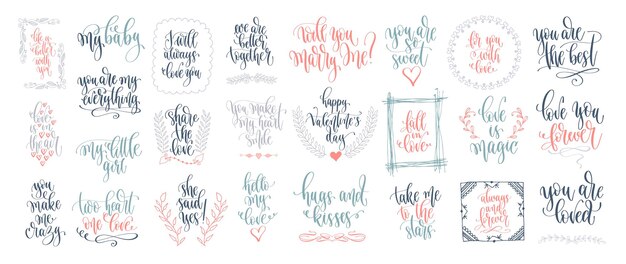 life is
better
with
you
my baby
I will
always
love you
we are
better
together
will you
marry me?
you are
so
sweet
for you
with
love
you are
the best
you are my
everything
love
is in
the air
my little
girl
share
the
love
you make
my heart
smile
happy
Valentine's
day
fall
in
love
love
is
magic
love you
forever
you
make
me
crazy
two heart
one love
she
said
yes!
hello
my
love
hugs and
kisses
take me
to the
stars
always
and
forever
you are
loved